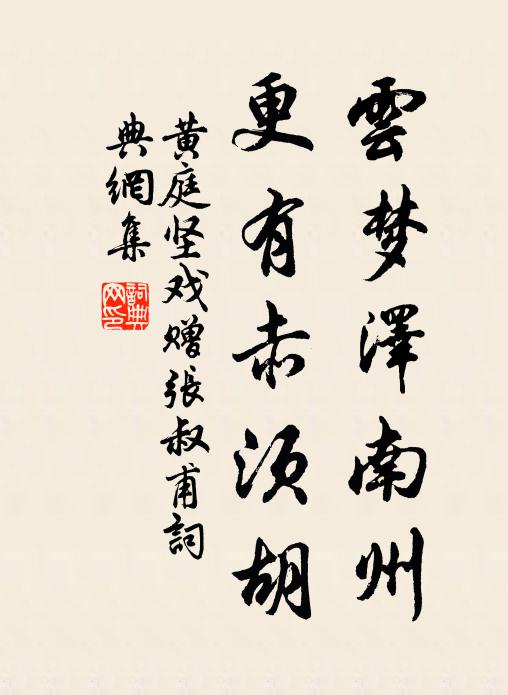 雲梦澤南州
更有赤须胡
黄庭坚戏赠張叔甫詞
典網集
詞典
网印